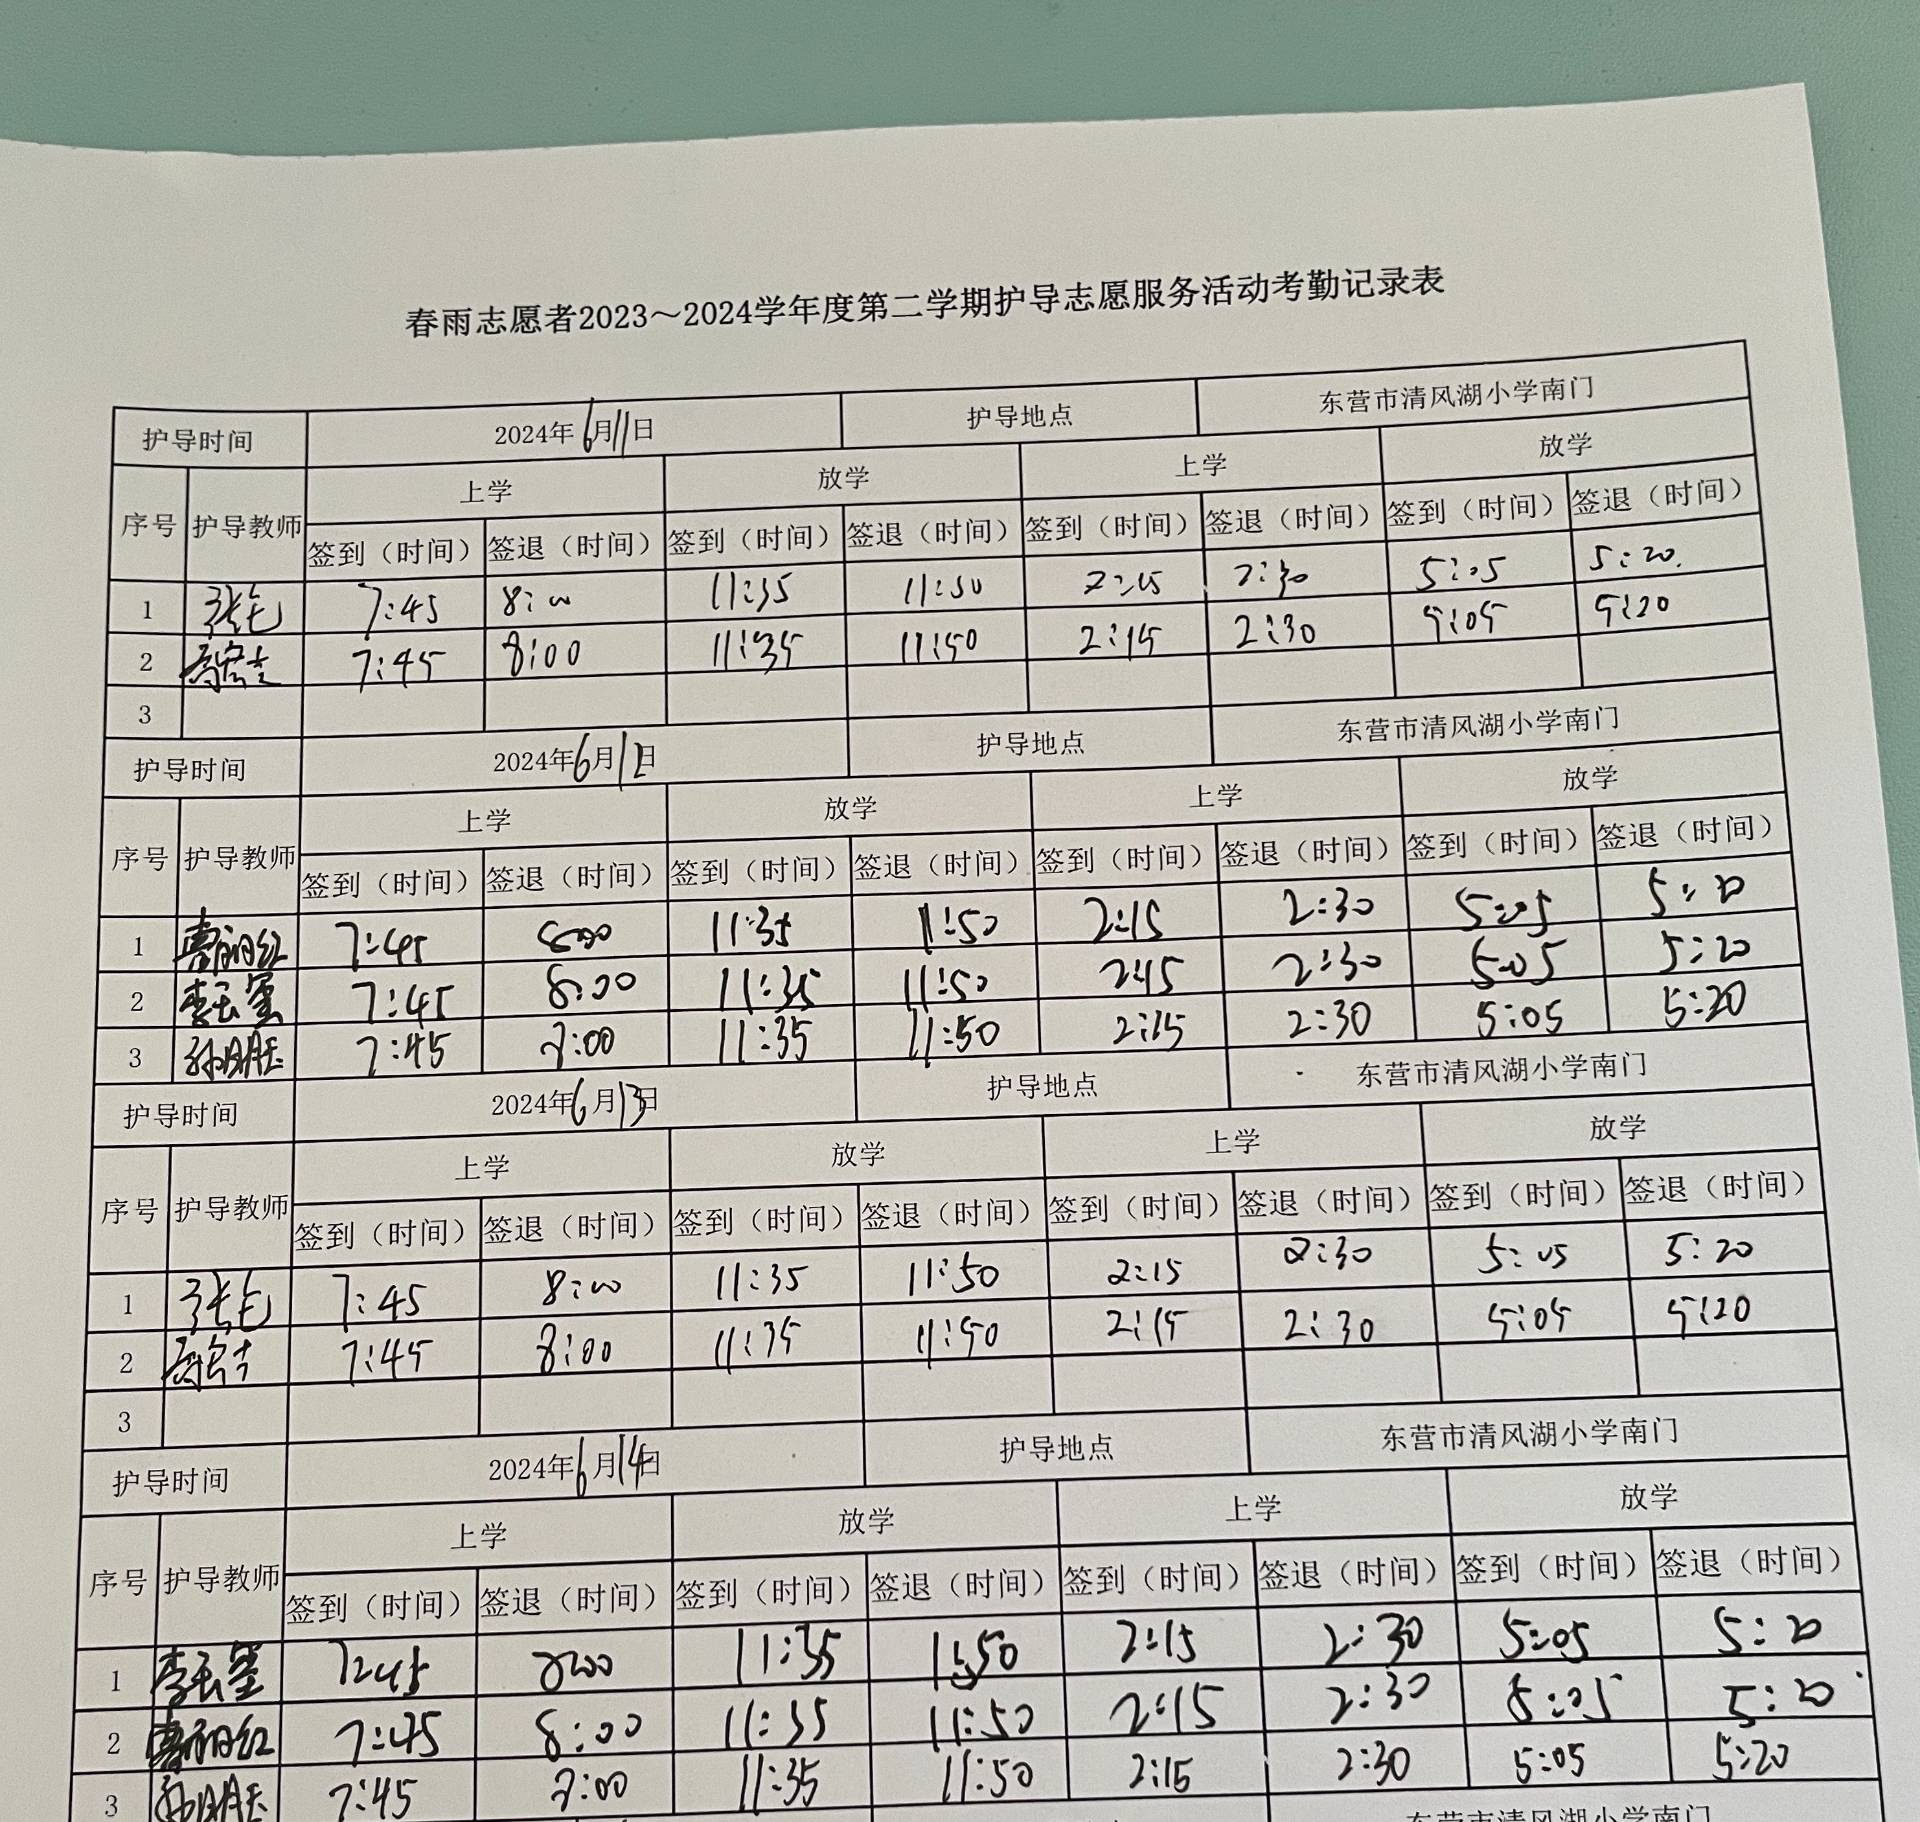 春雨志愿者2023～2024学年度第二学期护导志愿服务活动考勤记录表
护导时间 2024年6月11日 护导地点 东营市清风湖小学南门
序号 护导教师 上学 放学 上学 放学
签到（时间） 签退（时间） 签到（时间） 签退（时间） 签到（时间） 签退（时间） 签到（时间） 签退（时间）
1 7:45 8:00 11:35 11:50 2:15 2:30 5:05 5:20
2 7:45 8:00 11:35 11:50 2:15 2:30 5:05 5:20
3
护导时间 2024年6月12日 护导地点 东营市清风湖小学南门
序号 护导教师 上学 放学 上学 放学
签到（时间） 签退（时间） 签到（时间） 签退（时间） 签到（时间） 签退（时间） 签到（时间） 签退（时间）
1 7:45 8:00 11:35 11:50 2:15 2:30 5:05 5:20
2 7:45 8:00 11:35 11:50 2:15 2:30 5:05 5:20
3 7:45 8:00 11:35 11:50 2:15 2:30 5:05 5:20
护导时间 2024年6月13日 护导地点 东营市清风湖小学南门
序号 护导教师 上学 放学 上学 放学
签到（时间） 签退（时间） 签到（时间） 签退（时间） 签到（时间） 签退（时间） 签到（时间） 签退（时间）
1 7:45 8:00 11:35 11:50 2:15 2:30 5:05 5:20
2 7:45 8:00 11:35 11:50 2:15 2:30 5:05 5:20
3
护导时间 2024年6月14日 护导地点 东营市清风湖小学南门
序号 护导教师 上学 放学 上学 放学
签到（时间） 签退（时间） 签到（时间） 签退（时间） 签到（时间） 签退（时间） 签到（时间） 签退（时间）
1 7:45 8:00 11:35 11:50 2:15 2:30 5:05 5:20
2 7:45 8:00 11:35 11:50 2:15 2:30 5:05 5:20
3 7:45 8:00 11:35 11:50 2:15 2:30 5:05 5:20
东营市清风湖小学南门